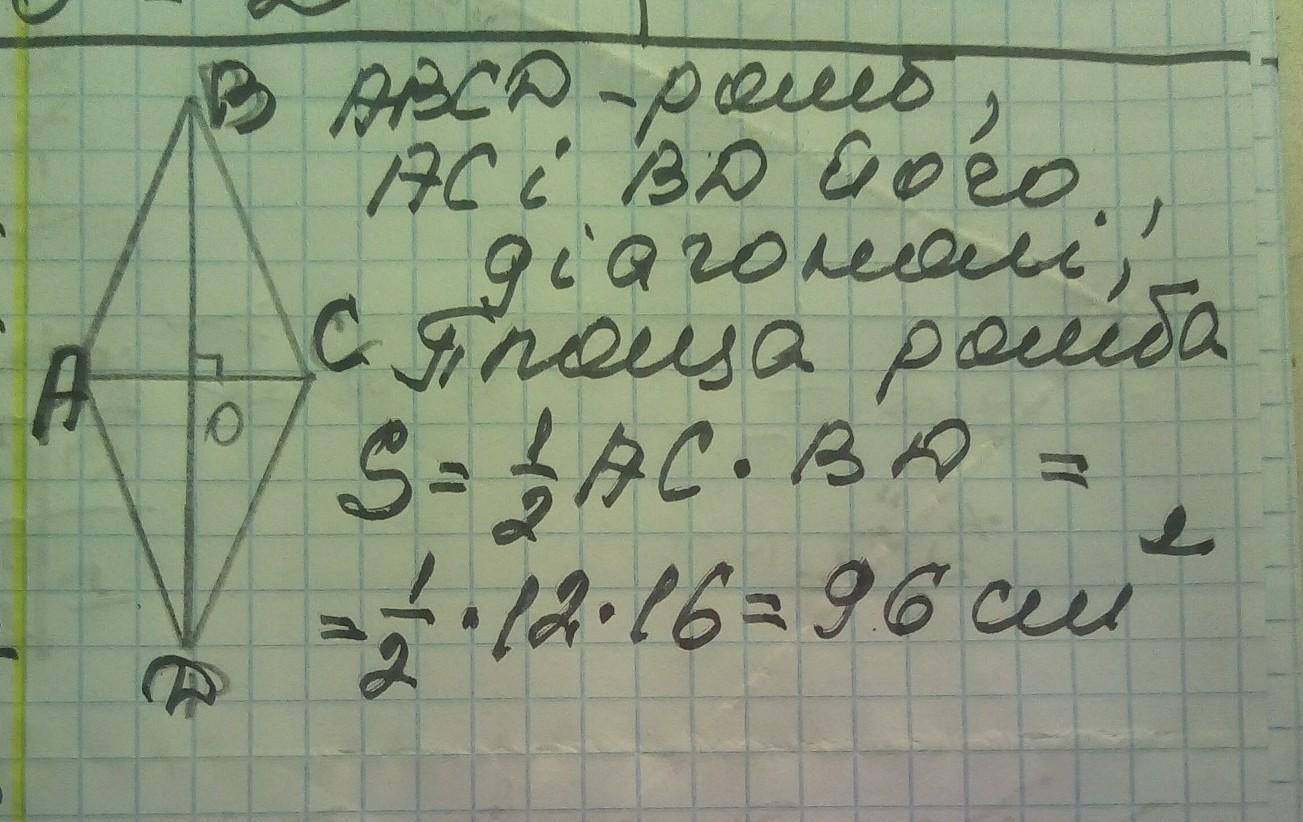 B ABCD - ромб,
AC і BD його
діагоналі;
A C Площа ромба
O
S = 1/2 AC · BD =
= 1/2 · 12 · 16 = 96 см²
D